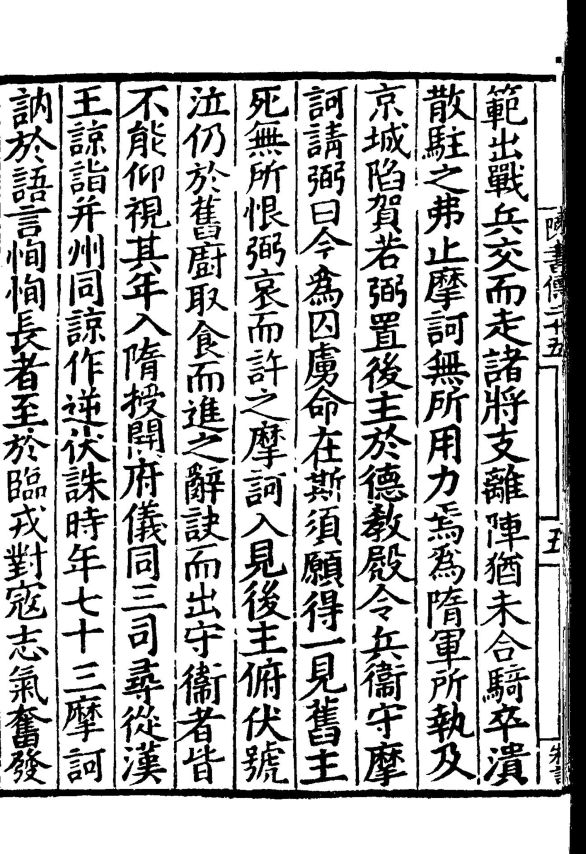 陳書傳二十五
五
範出戰兵交而走諸將支離陣猶未合騎卒潰
散駐之弗止摩訶無所用力焉爲隋軍所執及
京城陷賀若弼置後主於德敎殿令兵衞守摩
訶請弼曰今爲囚虜命在斯須願得一見舊主
死無所恨弼哀而許之摩訶入見後主俯伏號
泣仍於舊廚取食而進之辭訣而出守衞者皆
不能仰視其年入隋授開府儀同三司尋從漢
王諒詣并州同諒作逆伏誅時年七十三摩訶
訥於語言恂恂長者至於臨戎對寇志氣奮發